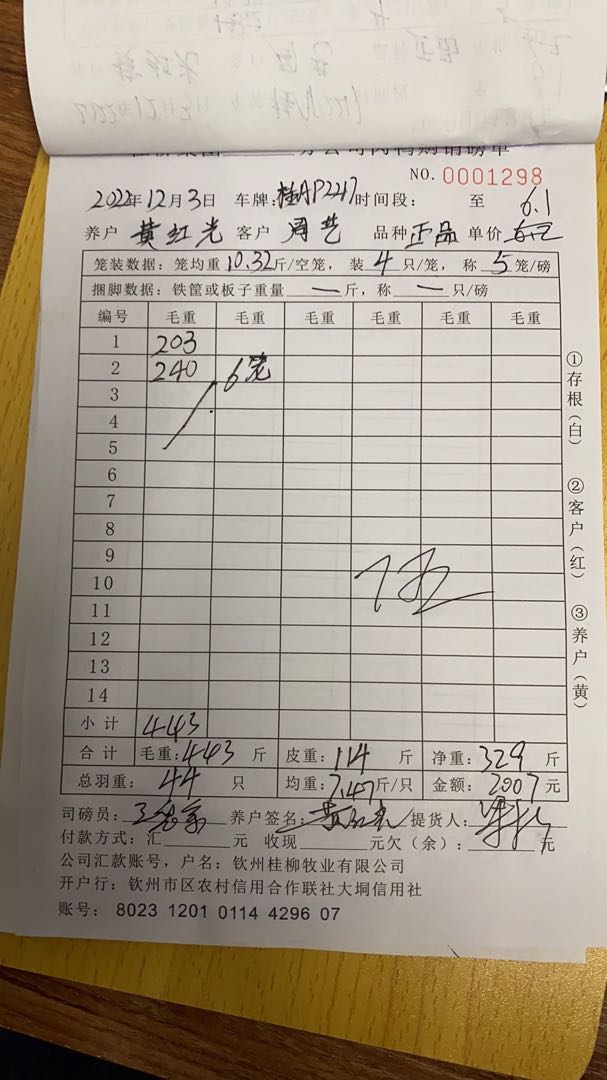 NO. 0001298
2022年12月3日 车牌:桂AP2217 时间段: 至
6.1
养户 黄红光 客户 周艺 品种 正品 单价
笼装数据: 笼均重10.32斤/空笼, 装4只/笼, 称5笼/磅
捆脚数据: 铁筐或板子重量 — 斤, 称 — 只/磅
编号 毛重 毛重 毛重 毛重 毛重 毛重
1 203
2 240 6笼
3
4
5
6
7
8
9
10
11
12
13
14
小计 443
合计 毛重:443斤 皮重:114斤 净重:329斤
总羽重: 44只 均重:7.47斤/只 金额:2007元
司磅员: 养户签名:黄红光 提货人:
付款方式: 汇 元 收现 元欠(余): 元
公司汇款账号, 户名: 钦州桂柳牧业有限公司
开户行: 钦州市区农村信用合作联社大垌信用社
账号: 8023 1201 0114 4296 07
①存根(白)
②客户(红)
③养户(黄)